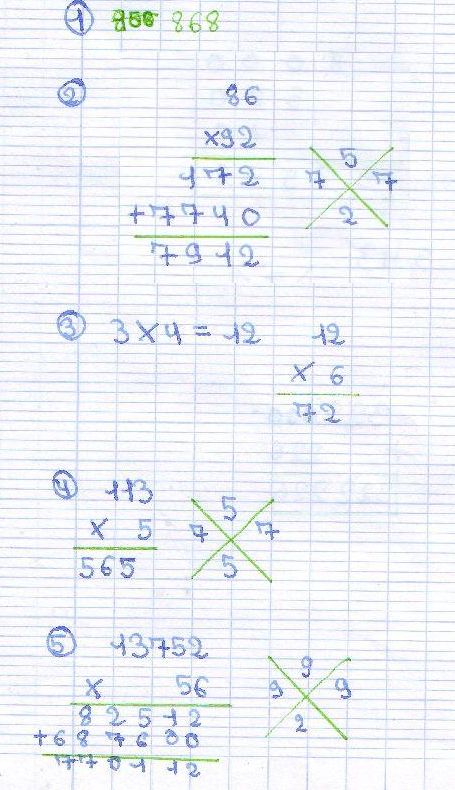 ① 868
② 86
×92
172
+7740
7912
5
7 7
2
③ 3×4=12 12
× 6
72
④ 113
× 5
565
5
7 7
5
⑤ 13752
× 56
82512
+687600
770112
9
9 9
2